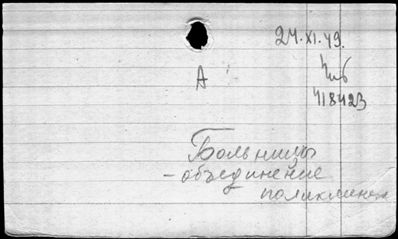 24·XI·49.
А
418423
Больницы
- объединение
поликлиник